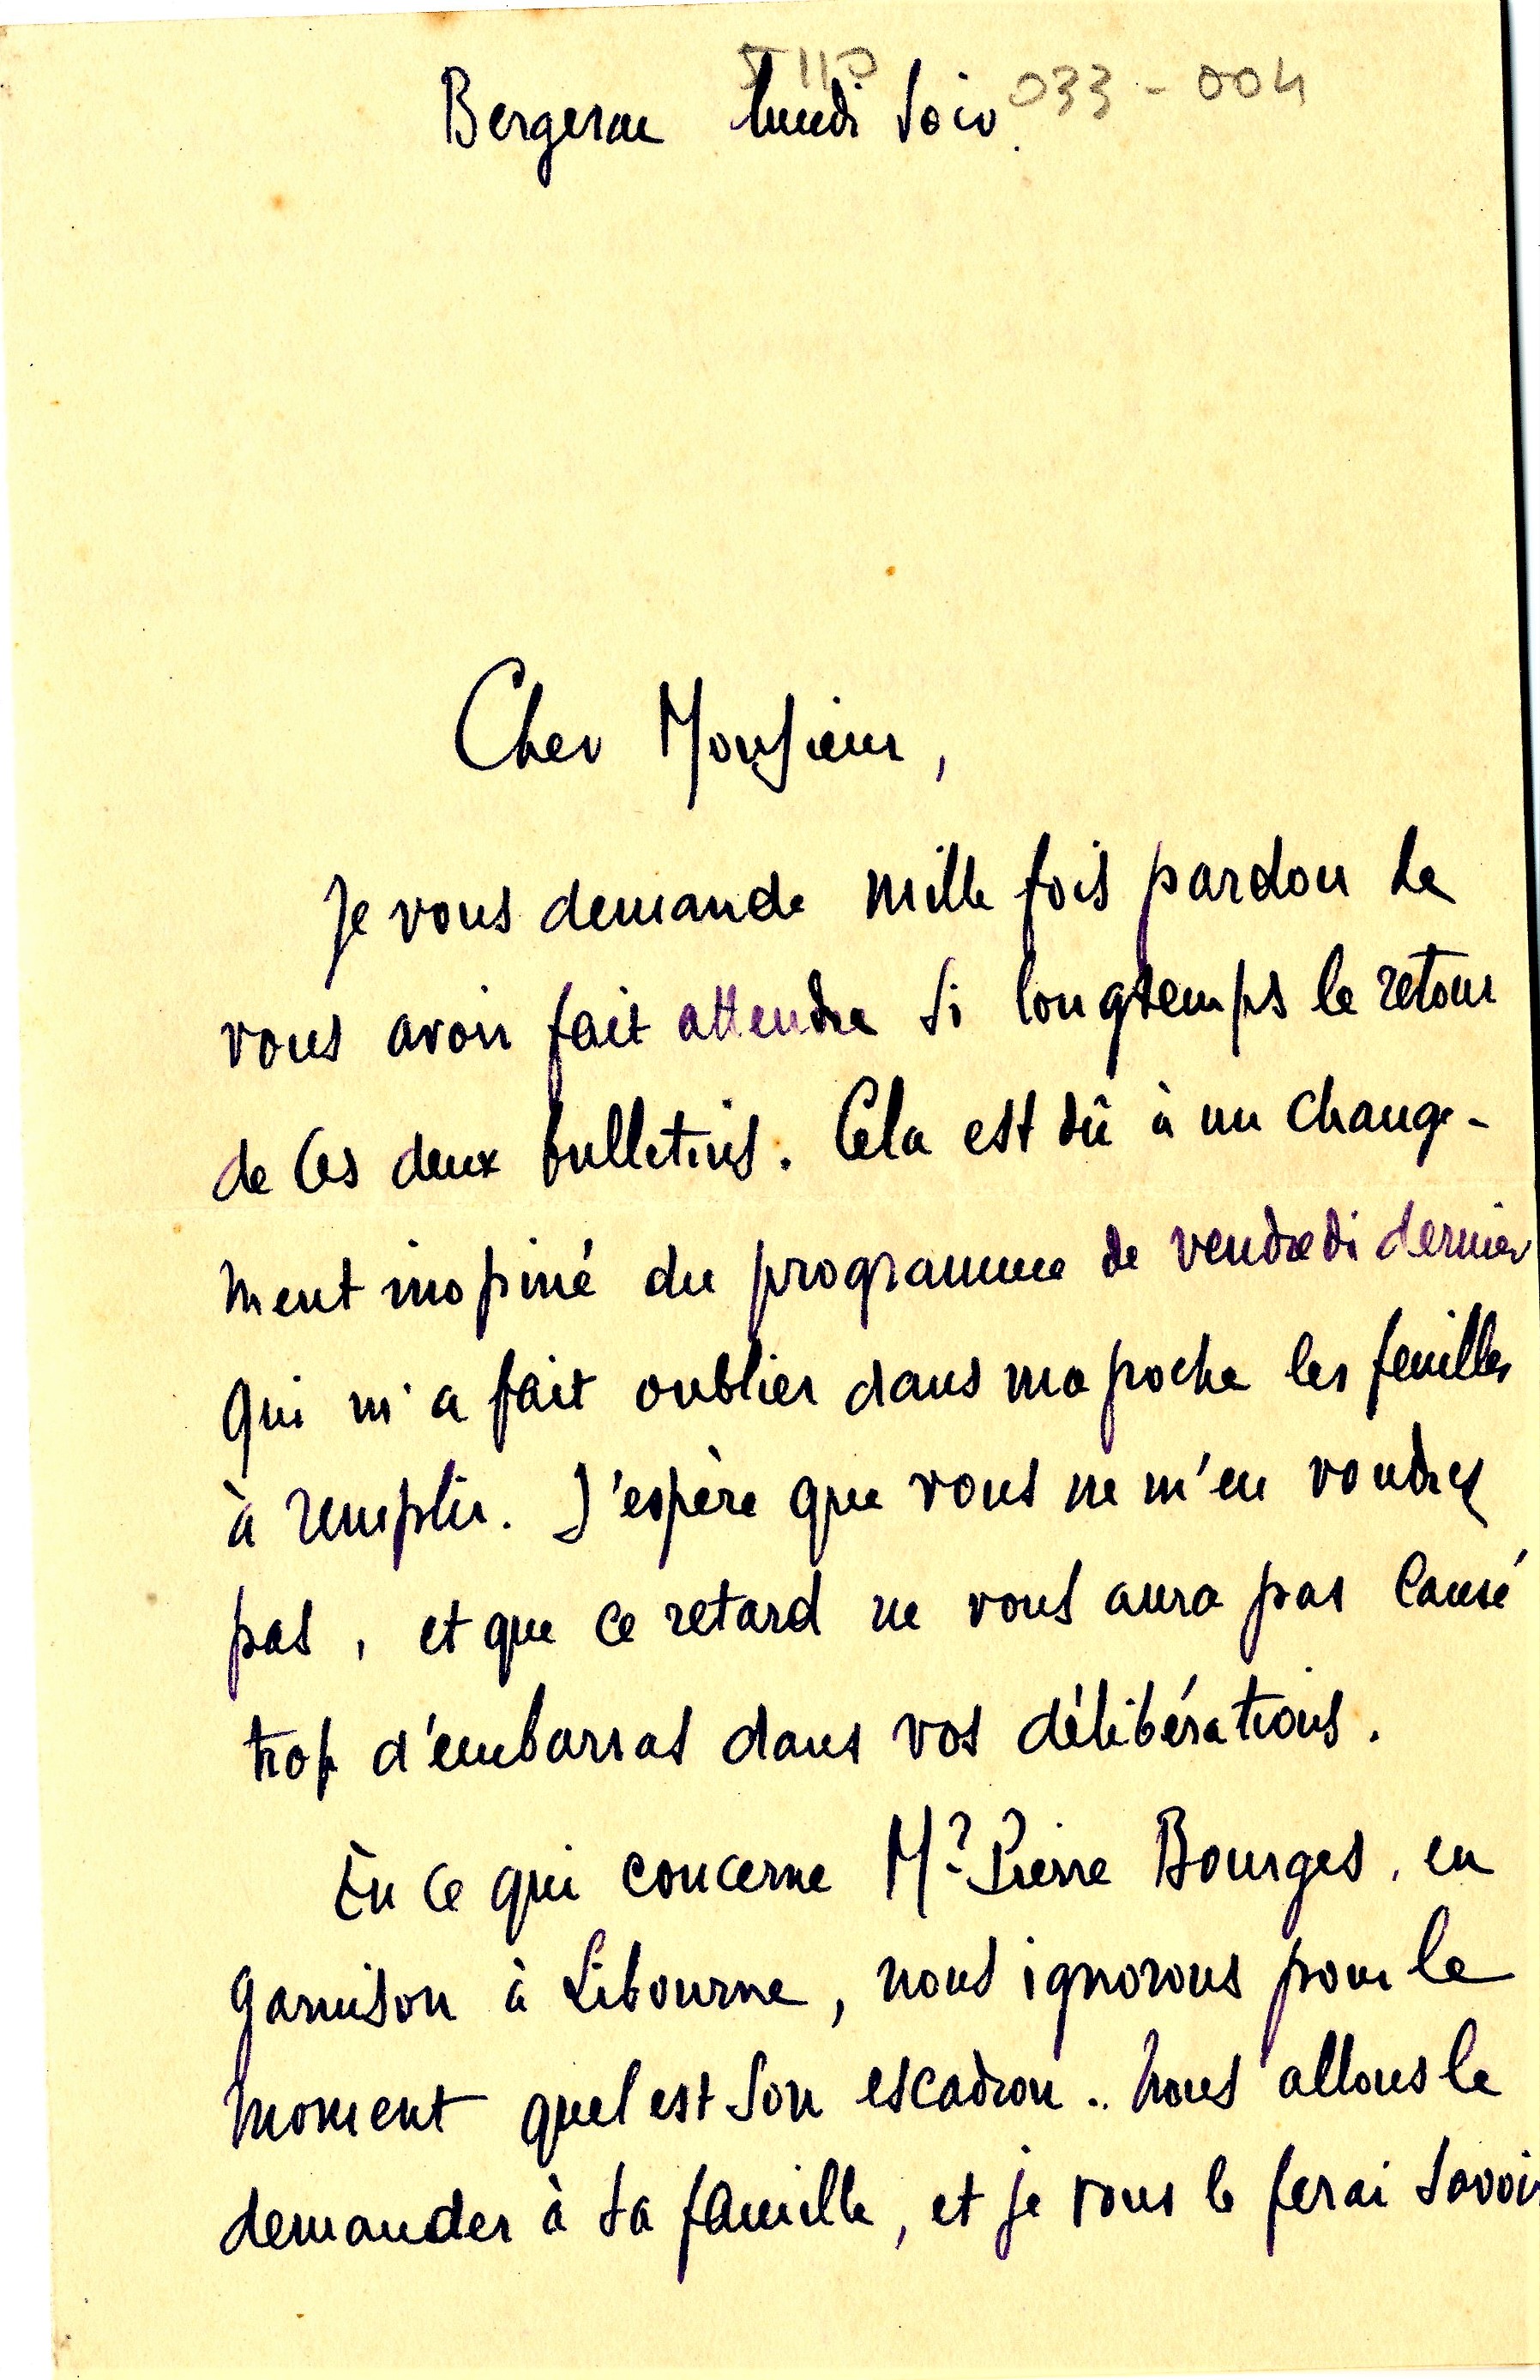 Bergerac lundi soir. 033-004
Cher Monsieur,
Je vous demande mille fois pardon de
vous avoir fait attendre si longtemps le retour
de ces deux bulletins. Cela est dû à un change-
ment inopiné du programme de vendredi dernier
qui m'a fait oublier dans ma poche les feuilles
à remplir. J'espère que vous ne m'en voudrez
pas, et que ce retard ne vous aura pas causé
trop d'embarras dans vos délibérations.
En ce qui concerne Mr Pierre Bourges, en
garnison à Libourne, nous ignorons pour le
moment quel est son escadron. Nous allons le
demander à sa famille, et je vous le ferai savoir